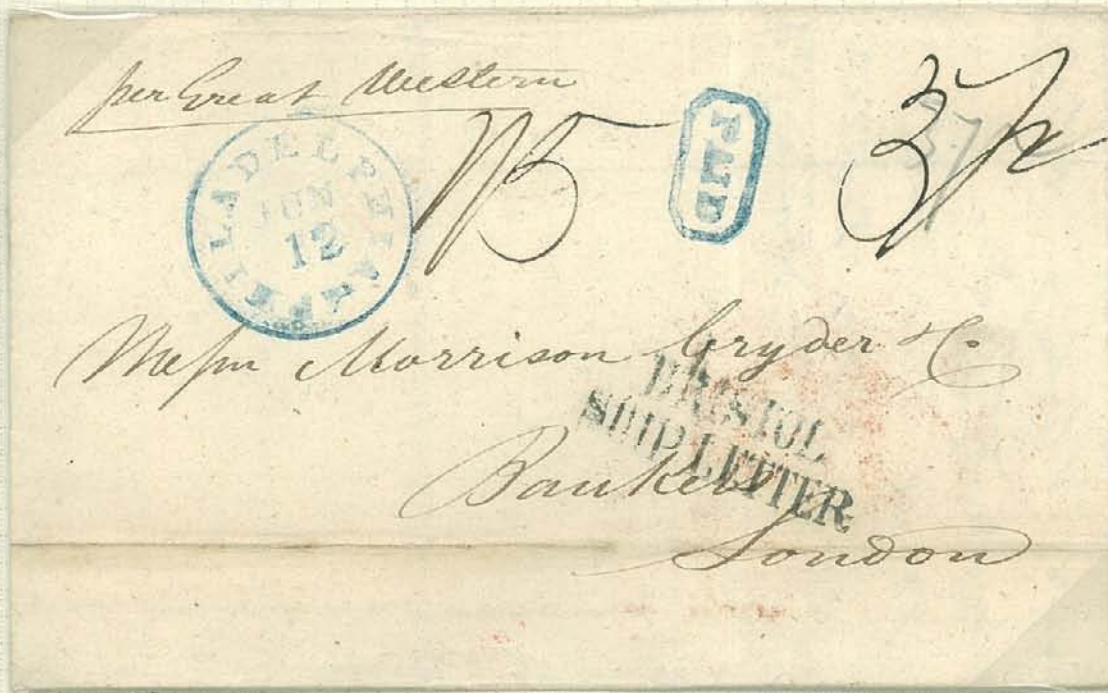 per Great Western
PHILADELPHIA Pa
JUN
12
1/5
PAID
37½
37½
Messrs Morrison Cryder & Co
BRISTOL
SHIP LETTER
Bankers
London